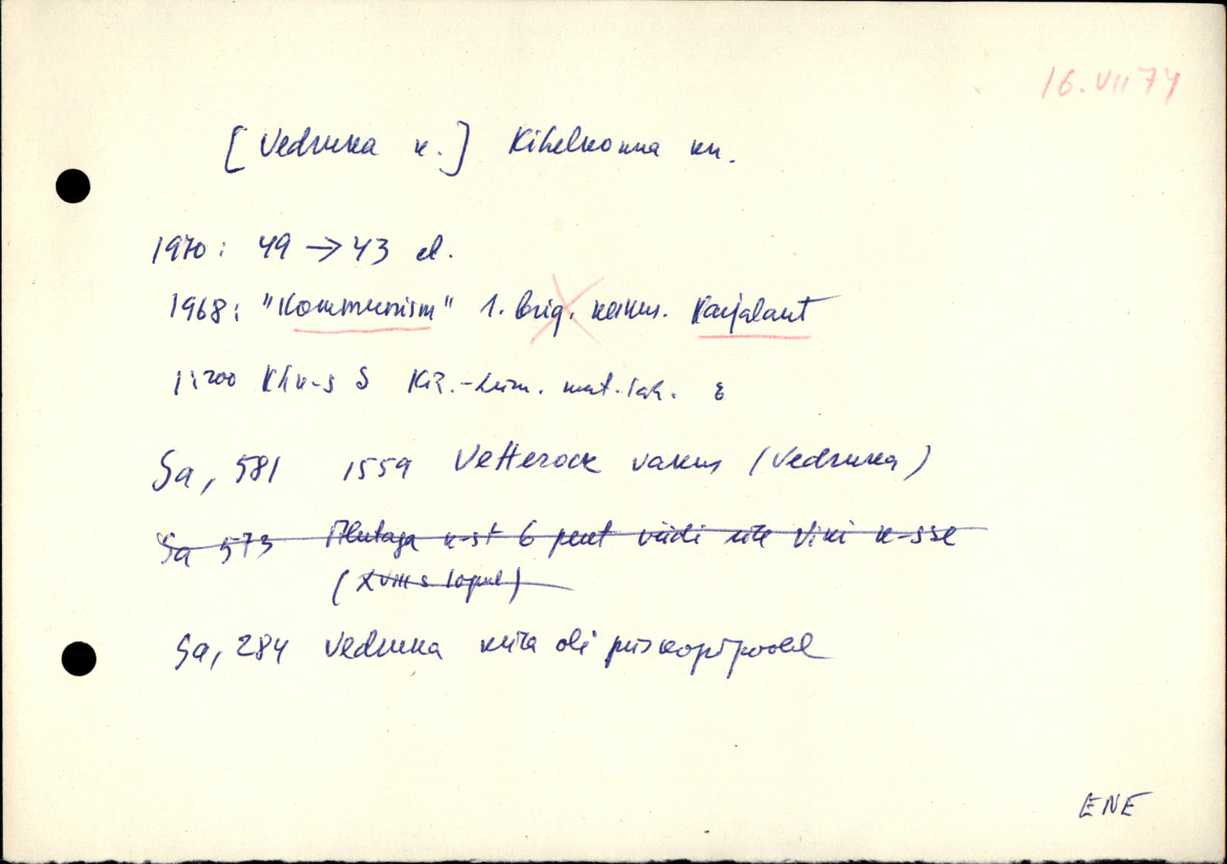 16.VII 74
[Vedruka k.] Kihelkonna kn.
1970: 49 → 43 el.
1968: "Kommunism" 1. brig. keskus. Karjalant
Sa, 581 1559 Vetterock vakus (Vedruka)
Sa 573 k-st 6 peret viidi üle Viki k-sse
(XVIII s lõpul)
Sa, 284 Vedruka küla oli piiskopi poolel
ENE